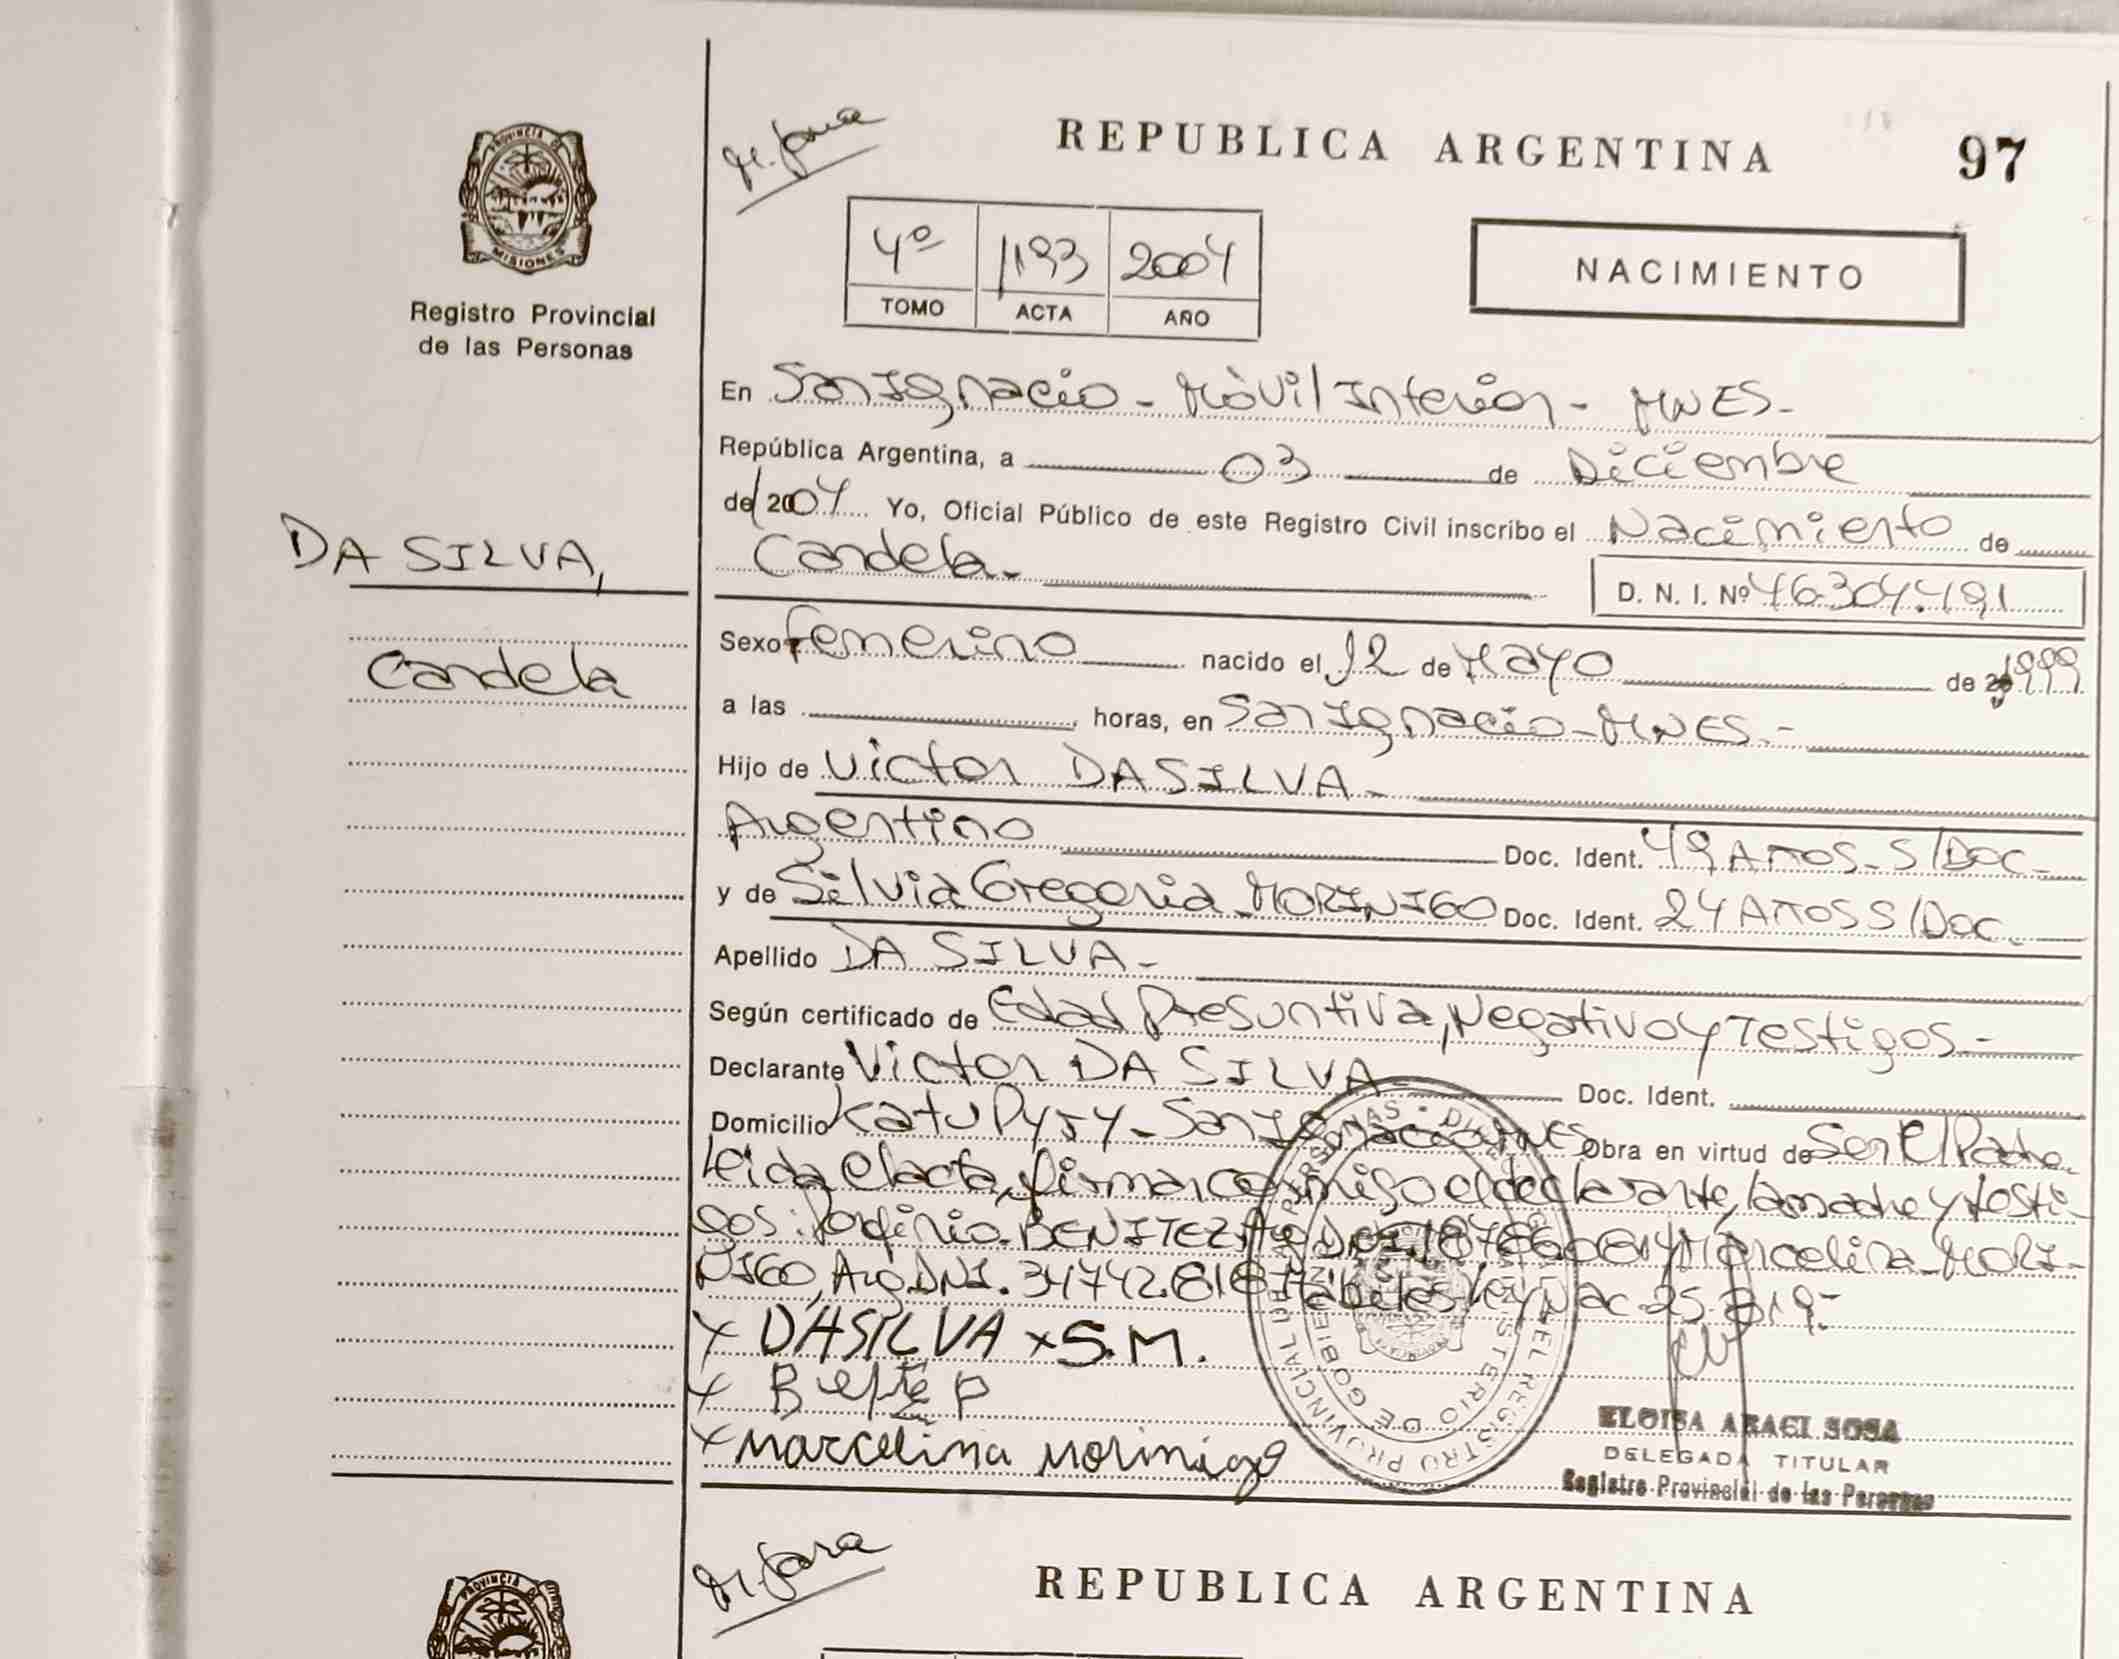 M. Jara
REPUBLICA ARGENTINA
97
4º 1193 2004
TOMO ACTA AÑO
NACIMIENTO
PROVINCIA DE
MISIONES
Registro Provincial
de las Personas
En San Ignacio - Móvil Interior - MNES.
República Argentina, a 03 de Diciembre
de 2004 Yo, Oficial Público de este Registro Civil inscribo el Nacimiento de
Candela.
D. N. I. Nº 46304.491
DA SILVA,
Candela
Sexo Femenino nacido el 12 de Mayo de 1999
a las horas, en San Ignacio - MNES.-
Hijo de Victor DA SILVA.
Argentino Doc. Ident. 49 AÑOS - S/DOC.
y de Silvia Gregoria MORINIGO Doc. Ident. 24 AÑOS S/Doc.
Apellido DA SILVA.-
Según certificado de Edad Presuntiva, Negativo y Testigos.-
Declarante Victor DA SILVA Doc. Ident.
Domicilio Katupyry - San Ignacio MNES Obra en virtud de Ser el Padre.
leida el acta, firman conmigo el declarante, la madre y testi-
gos: Porfirio BENITEZ, Marcelina MORI-
NIGO, Arg. DNI. 34742.818 Habiles Ley Nac. 25.819.-
x DASILVA x S.M.
x
x Marcelina Morinigo
ELOISA ARACI SOSA
DELEGADA TITULAR
Registro Provincial de las Personas
M. Jara
REPUBLICA ARGENTINA
PROVINCIA DE